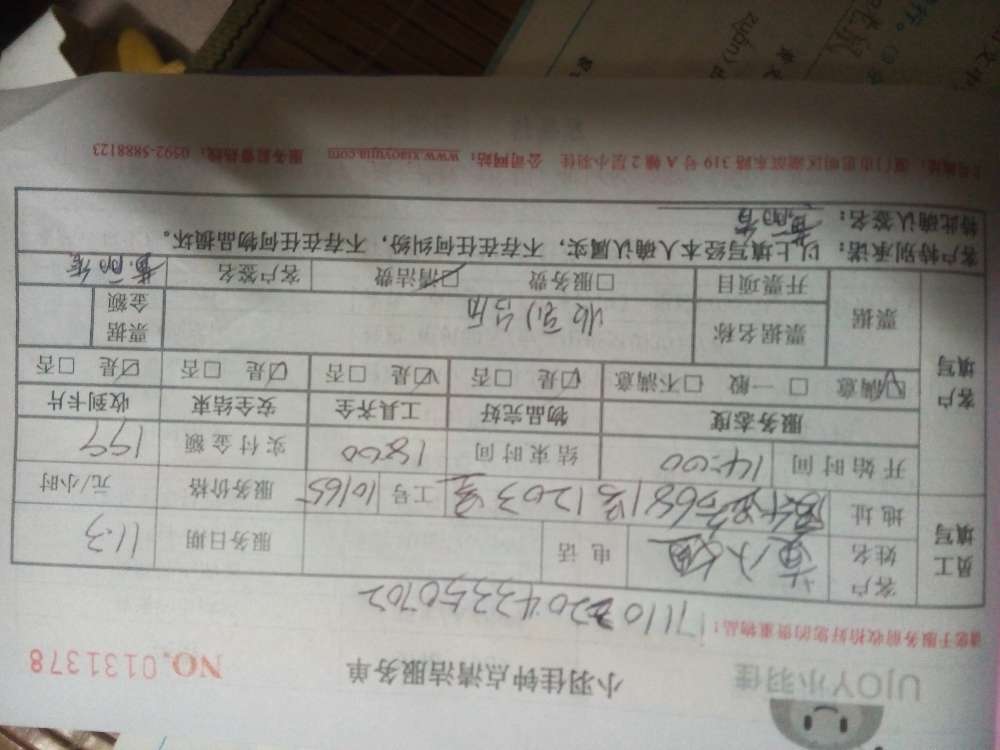 UJOY小羽佳
小羽佳钟点清洁服务单
NO.0131378
请您于服务前收拾好您的贵重物品:
员工填写
客户姓名 电话 服务日期 11.3
地址 681号1203室 工号 10165 服务价格 元/小时
开始时间 14:00 结束时间 18:00 实付金额 199
客户填写
服务态度 物品完好 工具齐全 安全结束 收到卡片
☑满意 □一般 □不满意 ☑是 □否 ☑是 □否 ☑是 □否 ☑是 □否
票据 票据名称 收到台后 票据金额
开票项目 □服务费 ☑清洁费 客户签名
客户特别承诺:以上填写经本人确认属实,不存在任何纠纷,不存在任何物品损坏。
特此确认签名:
厦门市思明区湖滨东路 319 号 A 幢 2 层小羽佳 公司网站:www.xiaoyujia.com 服务前督热线:0592-5888123